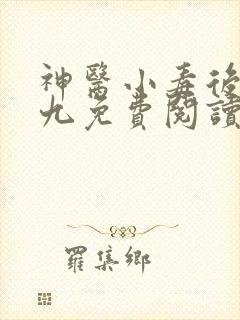 神醫小毒後
九免費閱讀
羅集鄉